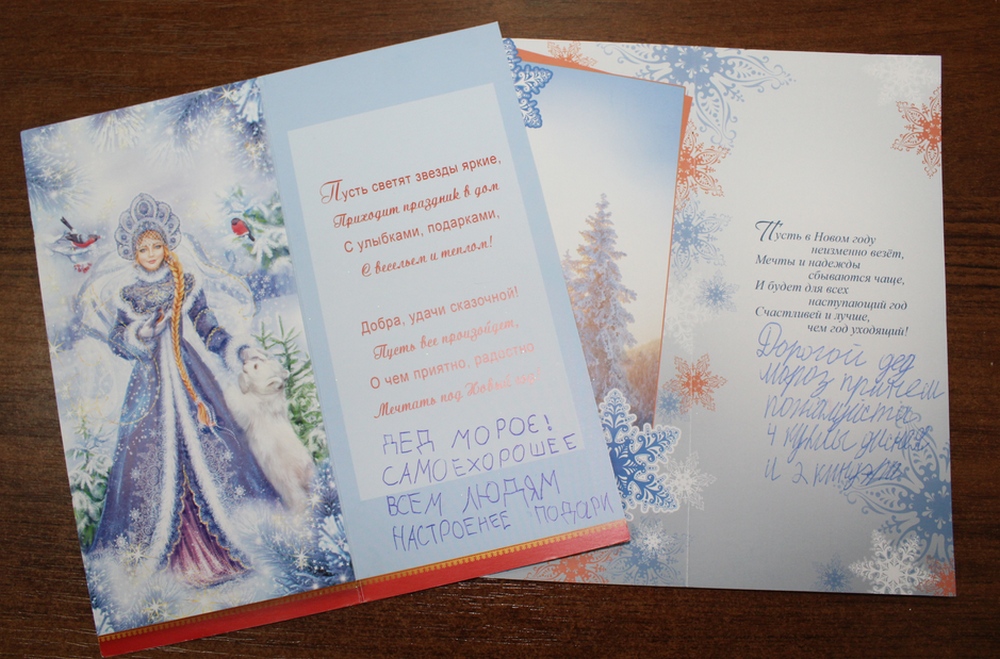 Пусть светят звезды яркие,
Приходит праздник в дом
С улыбками, подарками,
С весельем и теплом!
Добра, удачи сказочной!
Пусть все произойдет,
О чем приятно, радостно
Мечтать под Новый год!
ДЕД МОРОЄ!
САМОЕХОРОШЕЕ
ВСЕМ ЛЮДЯМ
НАСТРОЕНЕЕ ПОДАРИ
Пусть в Новом году
неизменно везёт,
Мечты и надежды
сбываются чаще,
И будет для всех
наступающий год
Счастливей и лучше,
чем год уходящий!
Дорогой дед
мороз принеси
пожалуйста
4 куклы
и 2